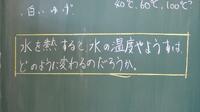 ・白い ゆげ
40℃、60℃、100℃?
水を熱すると水の温度やようすは
どのように変わるのだろうか。